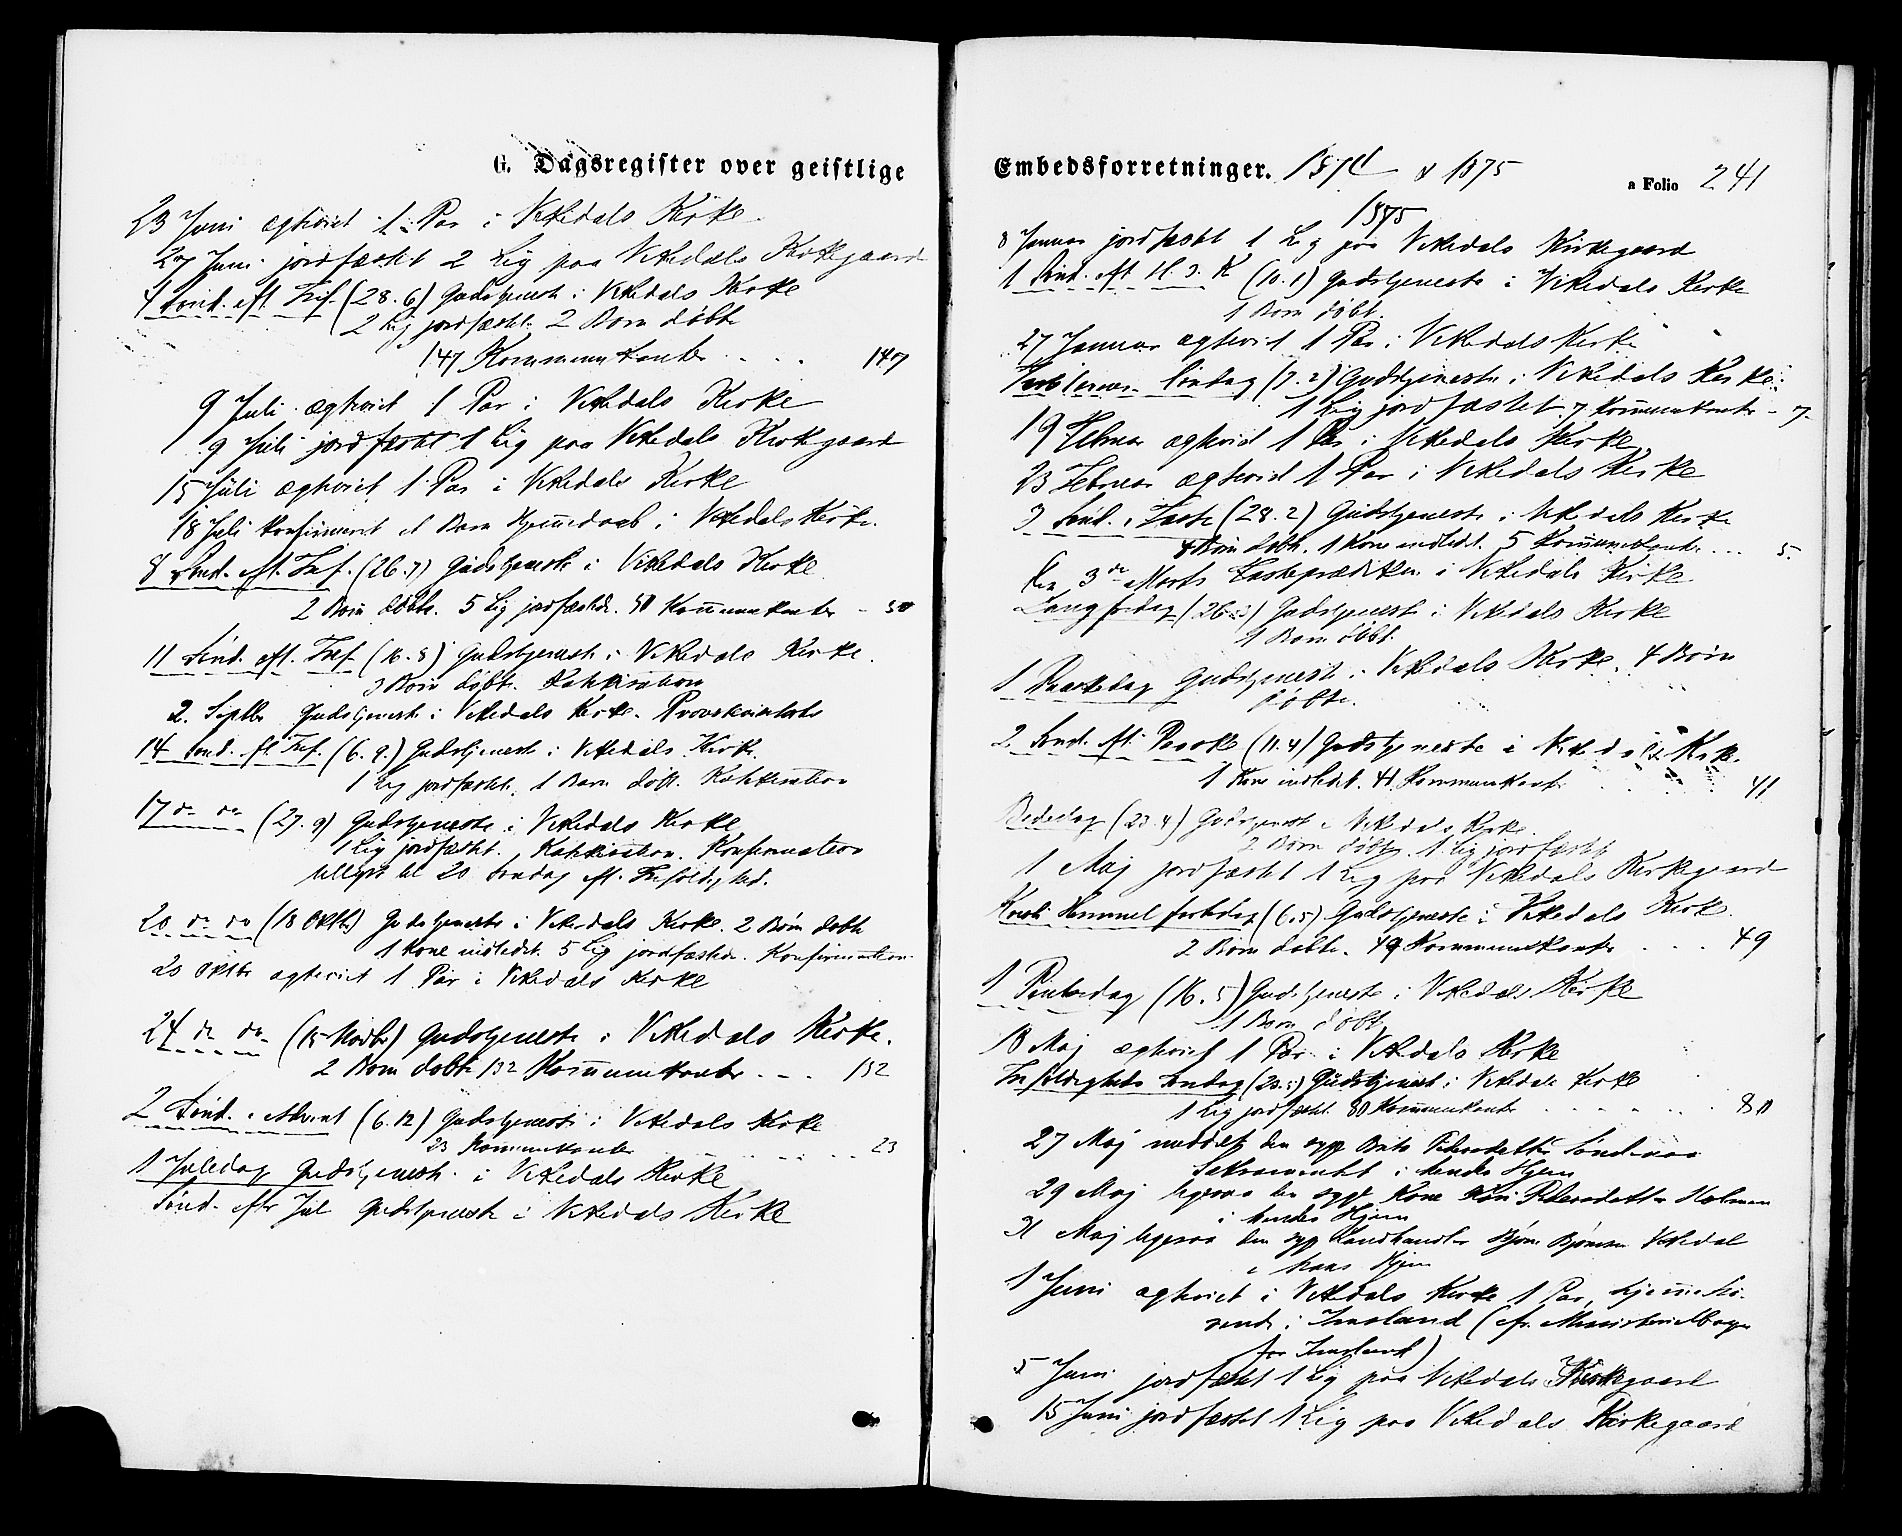 G. Dagsregister over geistlige
23 Juni ægteviet 1 Par i Vikedals Kirke.
27 Juni jordfæstet 2 Lig paa Vikedals Kirkegaard
4 Sønd. eft. Tref. (28.6) Gudstjeneste i Vikedals Kirke
2 Lig jordfæstet. 2 Børn døbte
147 Kommunikanter . . . 147
9 Juli ægteviet 1 Par i Vikedals Kirke
9 Juli jordfæstet 1 Lig paa Vikedals Kirkegaard
15 Juli ægteviet 1 Par i Vikedals Kirke
18 Juli konfirmeret et Barn i Vikedals Kirke.
8 Sønd. eft. Tref. (26.7) Gudstjeneste i Vikedals Kirke
2 Børn døbte. 5 Lig jordfæstede. 50 Kommunikanter - 50
11 Sønd. eft. Tref (16.8) Gudstjeneste i Vikedals Kirke.
3 Børn døbte. Katekisation
2. Septbr Gudstjeneste i Vikedals Kirke. Provstevisitats
14 Sønd. eft. Tref. (6.9.) Gudstjeneste i Vikedals Kirke.
1 Lig jordfæstet. 1 Barn døbt. Katekisation
17 do do (27.9) Gudstjeneste i Vikedals Kirke
1 Lig jordfæstet. Katekisation. Konfirmation
tillyst til 20 Søndag eft. Trefoldighed.
20 do do (18 Oktb) Gudstjeneste i Vikedals Kirke. 2 Børn døbte
1 Kone indledet. 5 Lig jordfæstede. Konfirmation.
20 Oktbr ægteviet 1 Par i Vikedals Kirke
24 do do (15 Novbr) Gudstjeneste i Vikedals Kirke.
2 Børn døbte 132 Kommunikanter . - . 132
2 Sønd. i Advent (6.12) Gudstjeneste i Vikedals Kirke
23 Kommunikanter . . . . . 23
1 Juledag Gudstjeneste i Vikedals Kirke
Sønd. eftr Jul Gudstjeneste i Vikedals Kirke
Embedsforretninger. 1874 & 1875
a Folio 241
1875
8 Januar jordfæstet 1 Lig paa Vikedals Kirkegaard
1 Sønd. eft. H. 3. K (10.1) Gudstjeneste i Vikedals Kirke
1 Barn døbt.
27 Januar ægteviet 1 Par i Vikedals Kirke
Fastelavns Søndag (7.2) Gudstjeneste i Vikedals Kirke.
1 Lig jordfæstet 7 Kommunikanter - 7
19 Februar ægteviet 1 Par i Vikedals Kirke
23 Februar ægteviet 1 Par i Vikedals Kirke
3 Sønd. i Faste (28.2) Gudstjeneste i Vikedals Kirke
4 Børn døbte. 1 Kone indledet. 5 Kommunikanter . . . 5.
Den 3de Marts Fasteprædiken i Vikedals Kirke
Langfredag (26.3) Gudstjeneste i Vikedals Kirke
1 Barn døbt.
1 Paaskedag Gudstjeneste i Vikedals Kirke. 4 Børn
døbte.
2 Sønd. eft. Paaske (11.4) Gudstjeneste i Vikedals Kirke.
1 Kone indledet. 41 Kommunikanter . . . . 41
Bededag (23.4) Gudstjeneste i Vikedals Kirke.
2 Børn døbte. 1 Lig jordfæstet
1 Maj jordfæstet 1 Lig paa Vikedals Kirkegaard
Kristi Himmelfartsdag (6.5) Gudstjeneste i Vikedals Kirke.
2 Børn døbte. 49 Kommunikanter . . . 49
1 Pintsedag (16.5) Gudstjeneste i Vikedals Kirke
1 Barn døbt
18 Maj ægteviet 1 Par i Vikedals Kirke
Trefoldigheds Søndag (23.5) Gudstjeneste i Vikedals Kirke
1 Lig jordfæstet. 80 Kommunikanter . . . . . 80
27 Maj meddelt den syge Brita Pedersdatter
Sakramentet i hendes Hjem
29 Maj ligesaa den syge Kone Kari Pedersdatter
i hendes Hjem
31 Maj ligesaa den syge Landhandler Bjørn Bjørnsen Vikedal
i hans Hjem
1 Juni ægteviet i Vikedals Kirke 1 Par, hjemmehø-
rende i Imsland (cfr. Ministerialbogen
for Imsland)
5 Juni jordfæstet 1 Lig paa Vikedals Kirkegaard
15 Juni jordfæstet 1 Lig paa Vikedals Kirkegaard